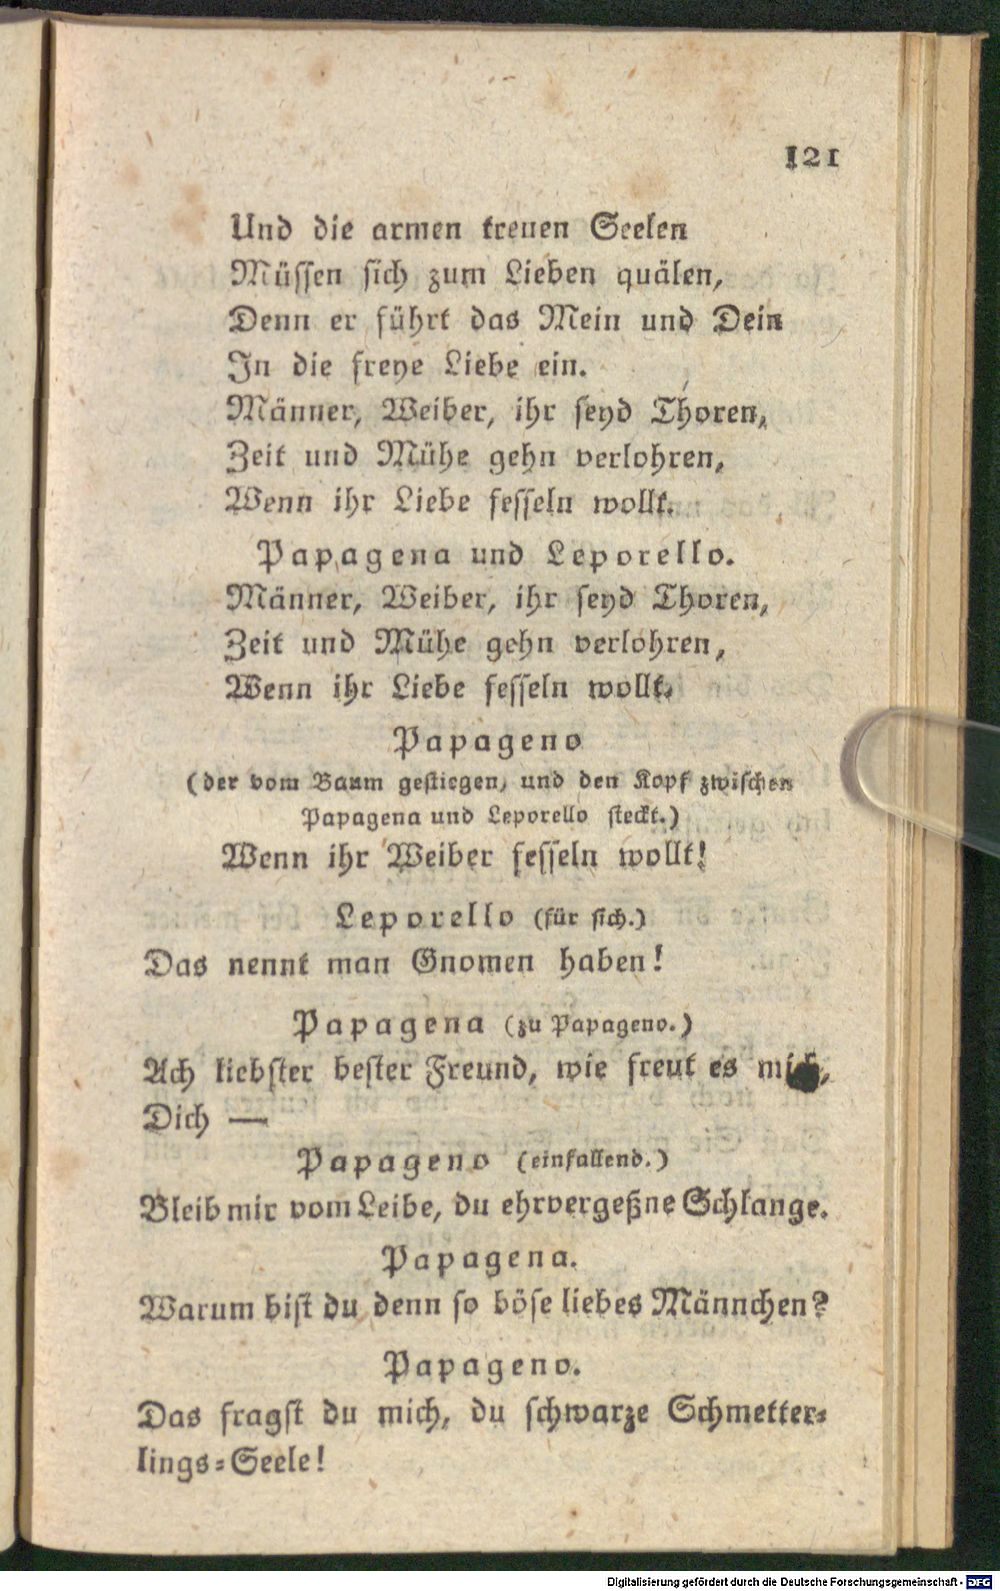 121
Und die armen treuen Seelen
Müssen sich zum Lieben quälen,
Denn er führt das Mein und Dein
In die freye Liebe ein.
Männer, Weiber, ihr seyd Thoren,
Zeit und Mühe gehn verlohren,
Wenn ihr Liebe fesseln wollt.
Papagena und Leporello.
Männer, Weiber, ihr seyd Thoren,
Zeit und Mühe gehn verlohren,
Wenn ihr Liebe fesseln wollt.
Papageno
(der vom Baum gestiegen, und den Kopf zwischen
Papagena und Leporello steckt.)
Wenn ihr Weiber fesseln wollt!
Leporello (für sich.)
Das nennt man Gnomen haben!
Papagena (zu Papageno.)
Ach liebster bester Freund, wie freut es mich,
Dich —
Papageno (einfallend.)
Bleib mir vom Leibe, du ehrvergeßne Schlange.
Papagena.
Warum bist du denn so böse liebes Männchen?
Papageno.
Das fragst du mich, du schwarze Schmetter-
lings-Seele!
Digitalisierung gefördert durch die Deutsche Forschungsgemeinschaft - DFG